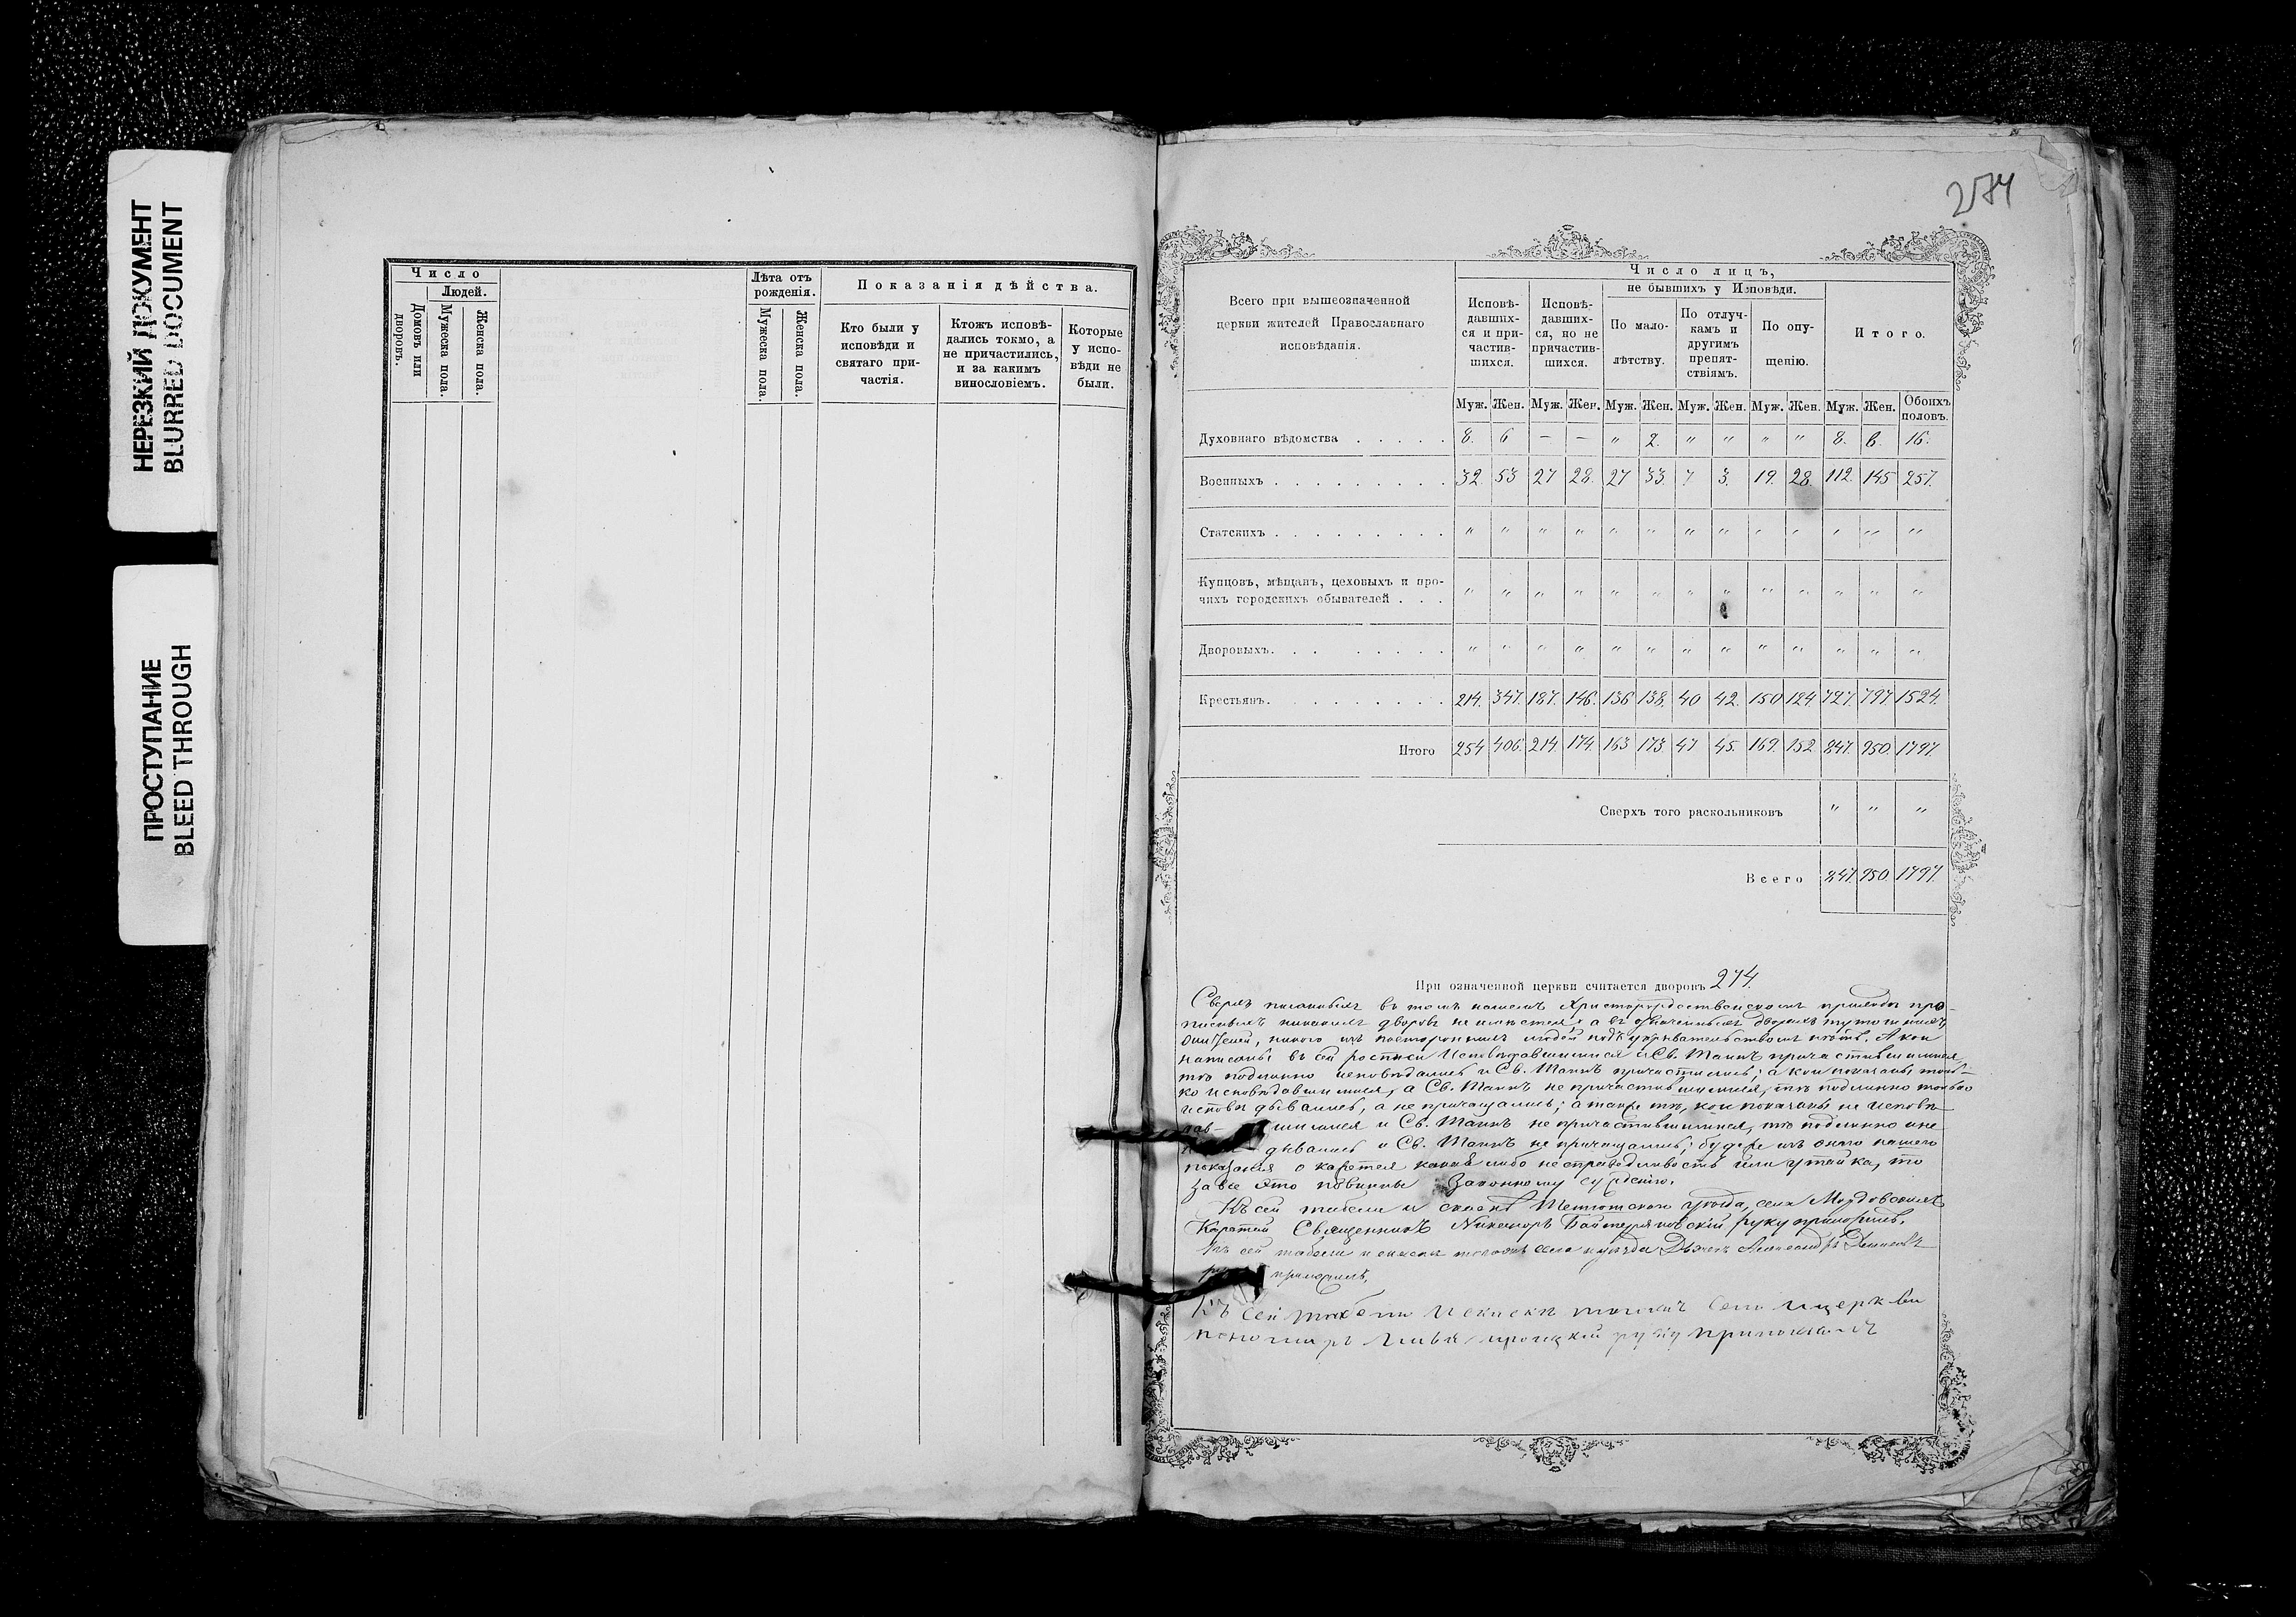 НЕРЕЗКИЙ ДОКУМЕНТ
BLURRED DOCUMENT
ПРОСТУПАНИЕ
BLEED THROUGH
Число
Людей.
Домовъ или дворовъ.
Мужеска пола.
Женска пола.
Лѣта отъ рожденія.
Мужеска пола.
Женска пола.
Показанія дѣйства.
Кто были у исповѣди и святаго причастія.
Ктожъ исповѣдались токмо, а не причастились, и за какимъ винословіемъ.
Которые у исповѣди не были.
Всего при вышеозначенной
церкви жителей Православнаго
исповѣданія.
Число лицъ,
Исповѣдавшихся и причастившихся.
Исповѣдавшихся, но не причастившихся.
не бывшихъ у Исповѣди.
По малолѣтству.
По отлучкамъ и другимъ препятствіямъ.
По опущенію.
Итого.
Муж. Жен. Муж. Жен. Муж. Жен. Муж. Жен. Муж. Жен. Муж. Жен. Обоихъ половъ.
Духовнаго вѣдомства . . . . . 8. 6 — — " 2. " " " " 8. 8. 16.
Военныхъ . . . . . . . . . 32 53 27 28. 27 33. 7 3. 19. 28. 112. 145 257.
Статскихъ . . . . . . . . . " " " " " " " " " " " " "
Купцовъ, мѣщанъ, цеховыхъ и про-
чихъ городскихъ обывателей . . . " " " " " " " " " " " " "
Дворовыхъ. . . . . . . . " " " " " " " " " " " " "
Крестьянъ. . . . . . . . . 214. 347. 187. 146. 136 138. 40 42. 150 124 727. 797. 1524.
Итого 254 406. 214 174. 163 173. 47 45. 169. 152 847. 950. 1797.
Сверхъ того раскольниковъ " " "
Всего 847. 950. 1797.
При означенной церкви считается дворовъ 274.
Сверхъ писанныхъ въ томъ нашемъ Христорождественскомъ приходѣ про-
писныхъ никакихъ дворовъ не имѣется, а въ означенныхъ дворахъ
никого изъ постороннихъ людей подъ укрывательствомъ нѣтъ. А кои
написаны въ сей росписи Исповѣдавшимися и Св. Таинъ причастившимися,
тѣ подлинно исповѣдались и Св. Таинъ причастились; а кои показаны толь-
ко исповѣдавшимися, а Св. Таинъ не причастившимися, тѣ подлинно токмо
исповѣдывались, а не причащались; а также тѣ, кои показаны не исповѣ-
дав- шимися и Св. Таинъ не причастившимися, тѣ подлинно и не
дывались и Св. Таинъ не причащались; будеже изъ онаго нашего
показанія окажется какая либо несправедливость или утайка, то
за все это повинны Законному сужденію.
Къ сей табели и скаскѣ Тетюшскаго уѣзда, села Мордовскихъ
Каратай Священникъ Никаноръ руку приложилъ.
Къ сей табели и скаскѣ тогожъ села и уѣзда Дьячекъ Александръ
приложилъ.
Къ сей табели и скаскѣ тогожъ села и церкви
пономарь руку приложилъ